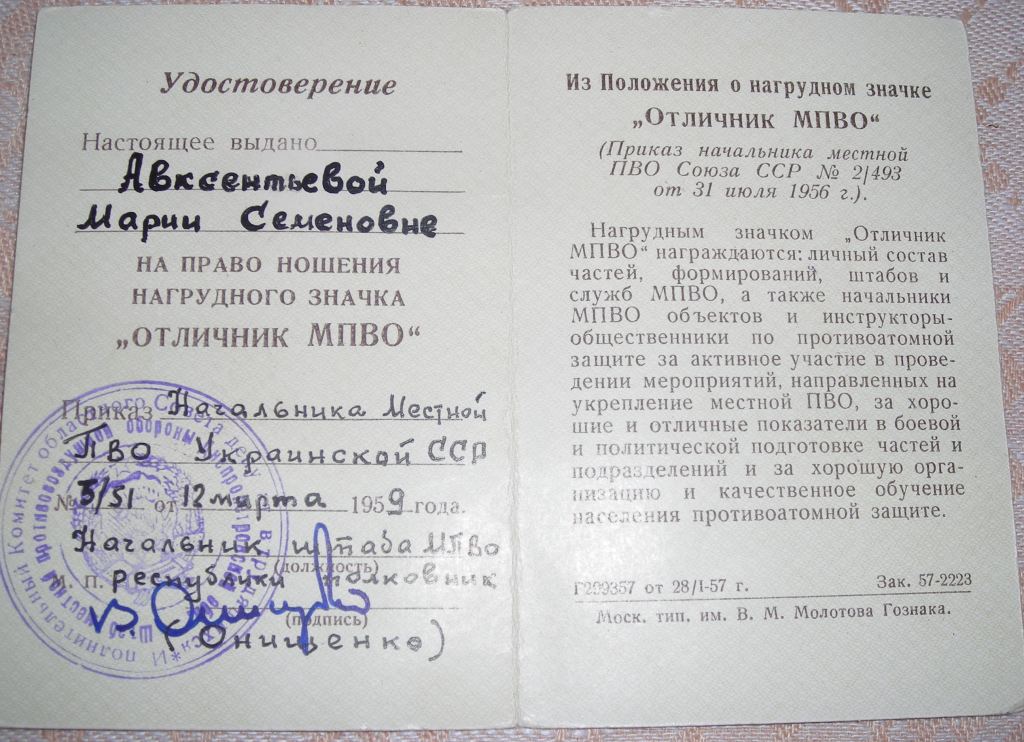 Удостоверение
Настоящее выдано
Авксентьевой
Марии Семеновне
НА ПРАВО НОШЕНИЯ
НАГРУДНОГО ЗНАЧКА
„ОТЛИЧНИК МПВО“
Приказ Начальника Местной
ПВО Украинской ССР
№ 3/51 от 12 марта 1959 года.
Начальник штаба МПВО
(должность)
М. П. республики полковник
(подпись)
(Онищенко)
Из Положения о нагрудном значке
„ОТЛИЧНИК МПВО“
(Приказ начальника местной
ПВО Союза ССР № 2/493
от 31 июля 1956 г.).
Нагрудным значком „Отличник
МПВО“ награждаются: личный состав
частей, формирований, штабов и
служб МПВО, а также начальники
МПВО объектов и инструкторы-
общественники по противоатомной
защите за активное участие в прове-
дении мероприятий, направленных на
укрепление местной ПВО, за хоро-
шие и отличные показатели в боевой
и политической подготовке частей и
подразделений и за хорошую орга-
низацию и качественное обучение
населения противоатомной защите.
Г299357 от 28/I-57 г. Зак. 57-2223
Моск. тип. им. В. М. Молотова Гознака.